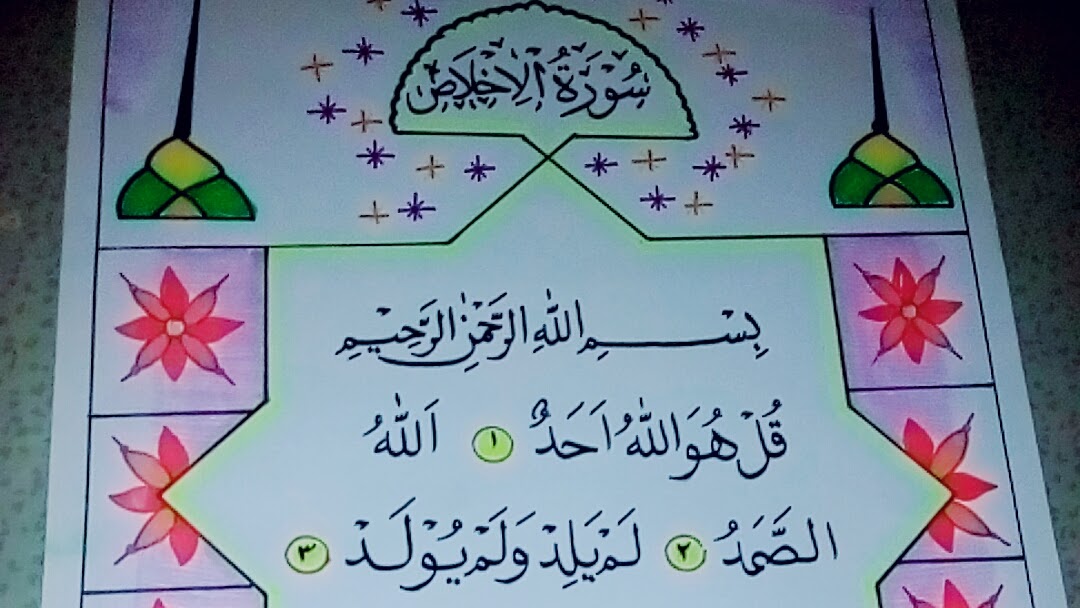 سُوْرَةُ الْاِخْلَاصْ
بِسْــــمِ اللّٰهِ الرَّحْمٰنِ الرَّحِيْمِ
قُلْ هُوَ اللّٰهُ اَحَدٌ ١ اَللّٰهُ
الصَّمَدُ ٢ لَمْ يَلِدْ وَلَمْ يُوْلَدْ ٣